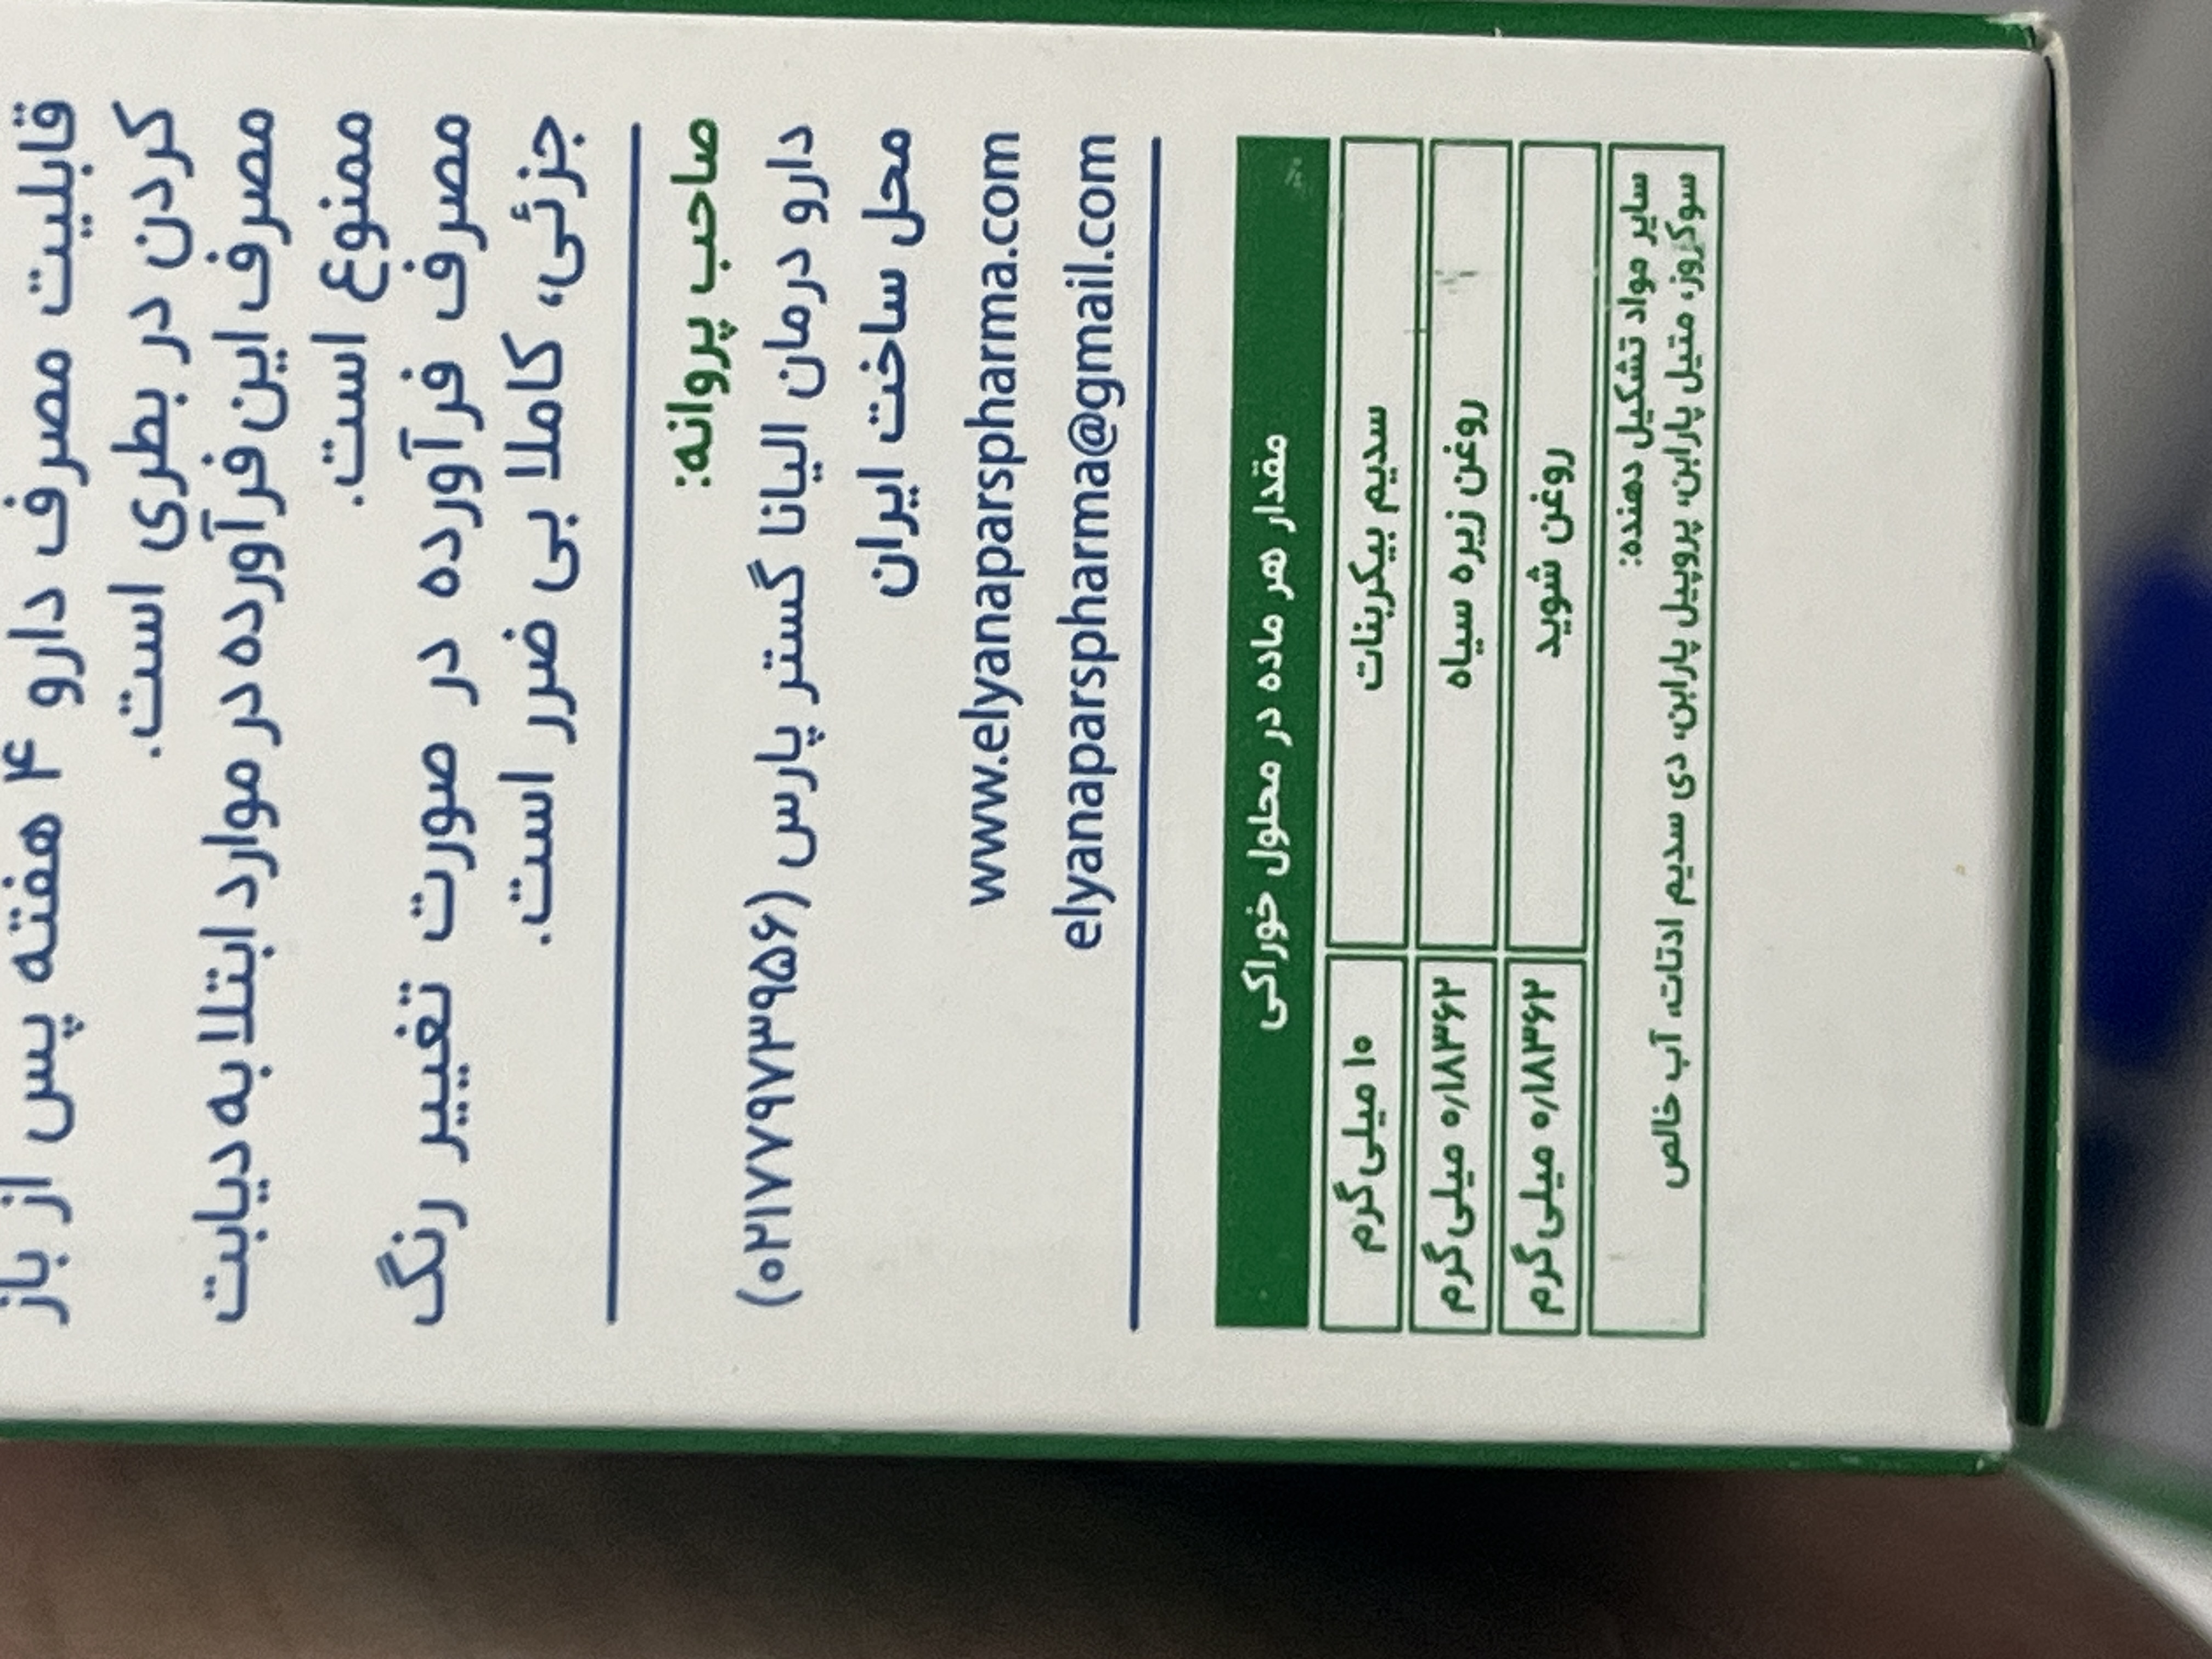 قابلیت مصرف دارو ۴ هفته پس از باز
کردن در بطری است.
مصرف این فرآورده در موارد ابتلا به دیابت
ممنوع است.
مصرف فرآورده در صورت تغییر رنگ
جزئی، کاملا بی ضرر است.
صاحب پروانه:
دارو درمان الیانا گستر پارس (۰۲۱۷۷۹۷۳۹۵۶)
محل ساخت ایران
www.elyanaparspharma.com
elyanaparspharma@gmail.com
مقدار هر ماده در محلول خوراکی
سدیم بیکربنات ۱۰ میلی‌گرم
روغن زیره سیاه ۰/۱۸۳۶۲ میلی‌گرم
روغن شوید ۰/۱۸۳۶۲ میلی‌گرم
سایر مواد تشکیل دهنده:
سوکروز، متیل پارابن، پروپیل پارابن، دی سدیم ادتات، آب خالص